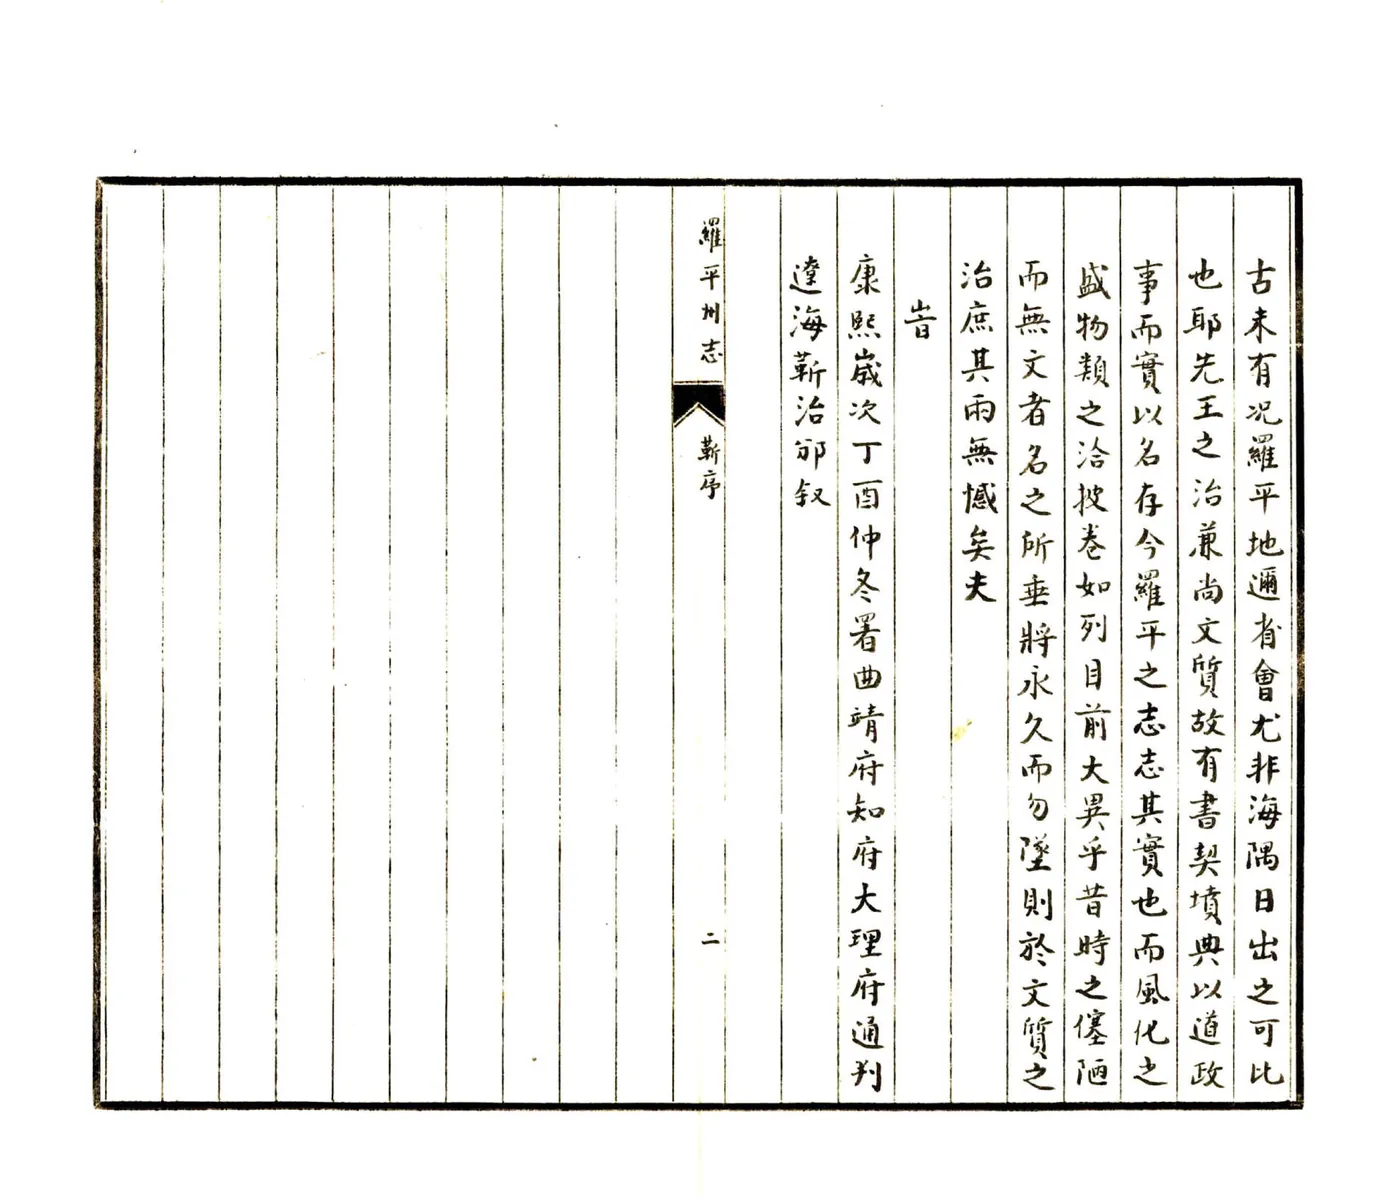 古未有况羅平地邇省會尤非海隅日出之可比
也耶先王之治兼尚文質故有書契墳典以道政
事而實以名存今羅平之志志其實也而風化之
盛物類之洽披卷如列目前大異乎昔時之僿陋
而無文者名之所垂將永久而勿墜則於文質之
治庶其兩無憾矣夫
旹
康熙歲次丁酉仲冬署曲靖府知府大理府通判
遼海靳治邠叙
羅平州志
靳序
二